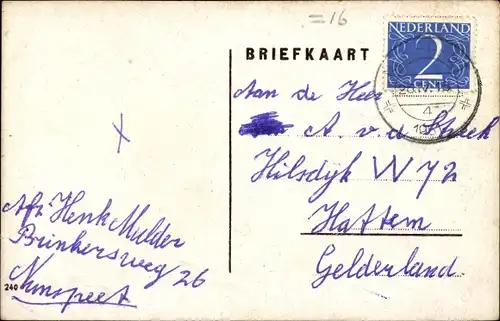 =16
BRIEFKAART
NEDERLAND
2
CENT
Aan de Heer
A. v.d. Streek
Hilsdijk W 72
Hattem
Gelderland.
Afz Henk Mulder
Brinkersweg 26
Nunspeet
240